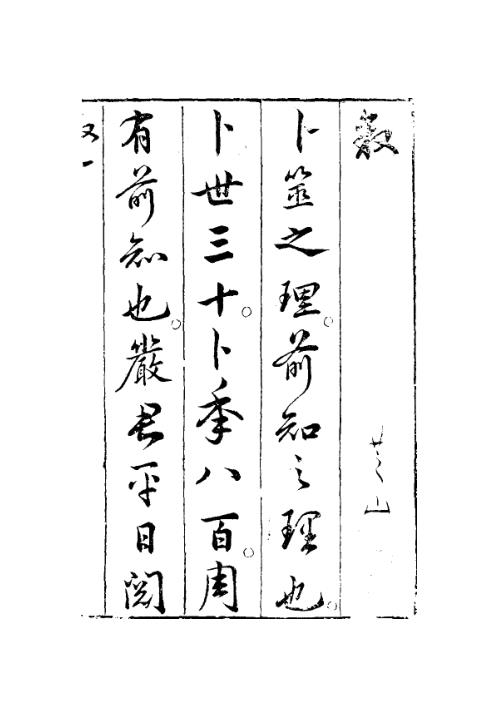 敘
芝山
卜筮之理。前知之理也。
卜世三十。卜秊八百。周
有前知也。嚴君平日閱